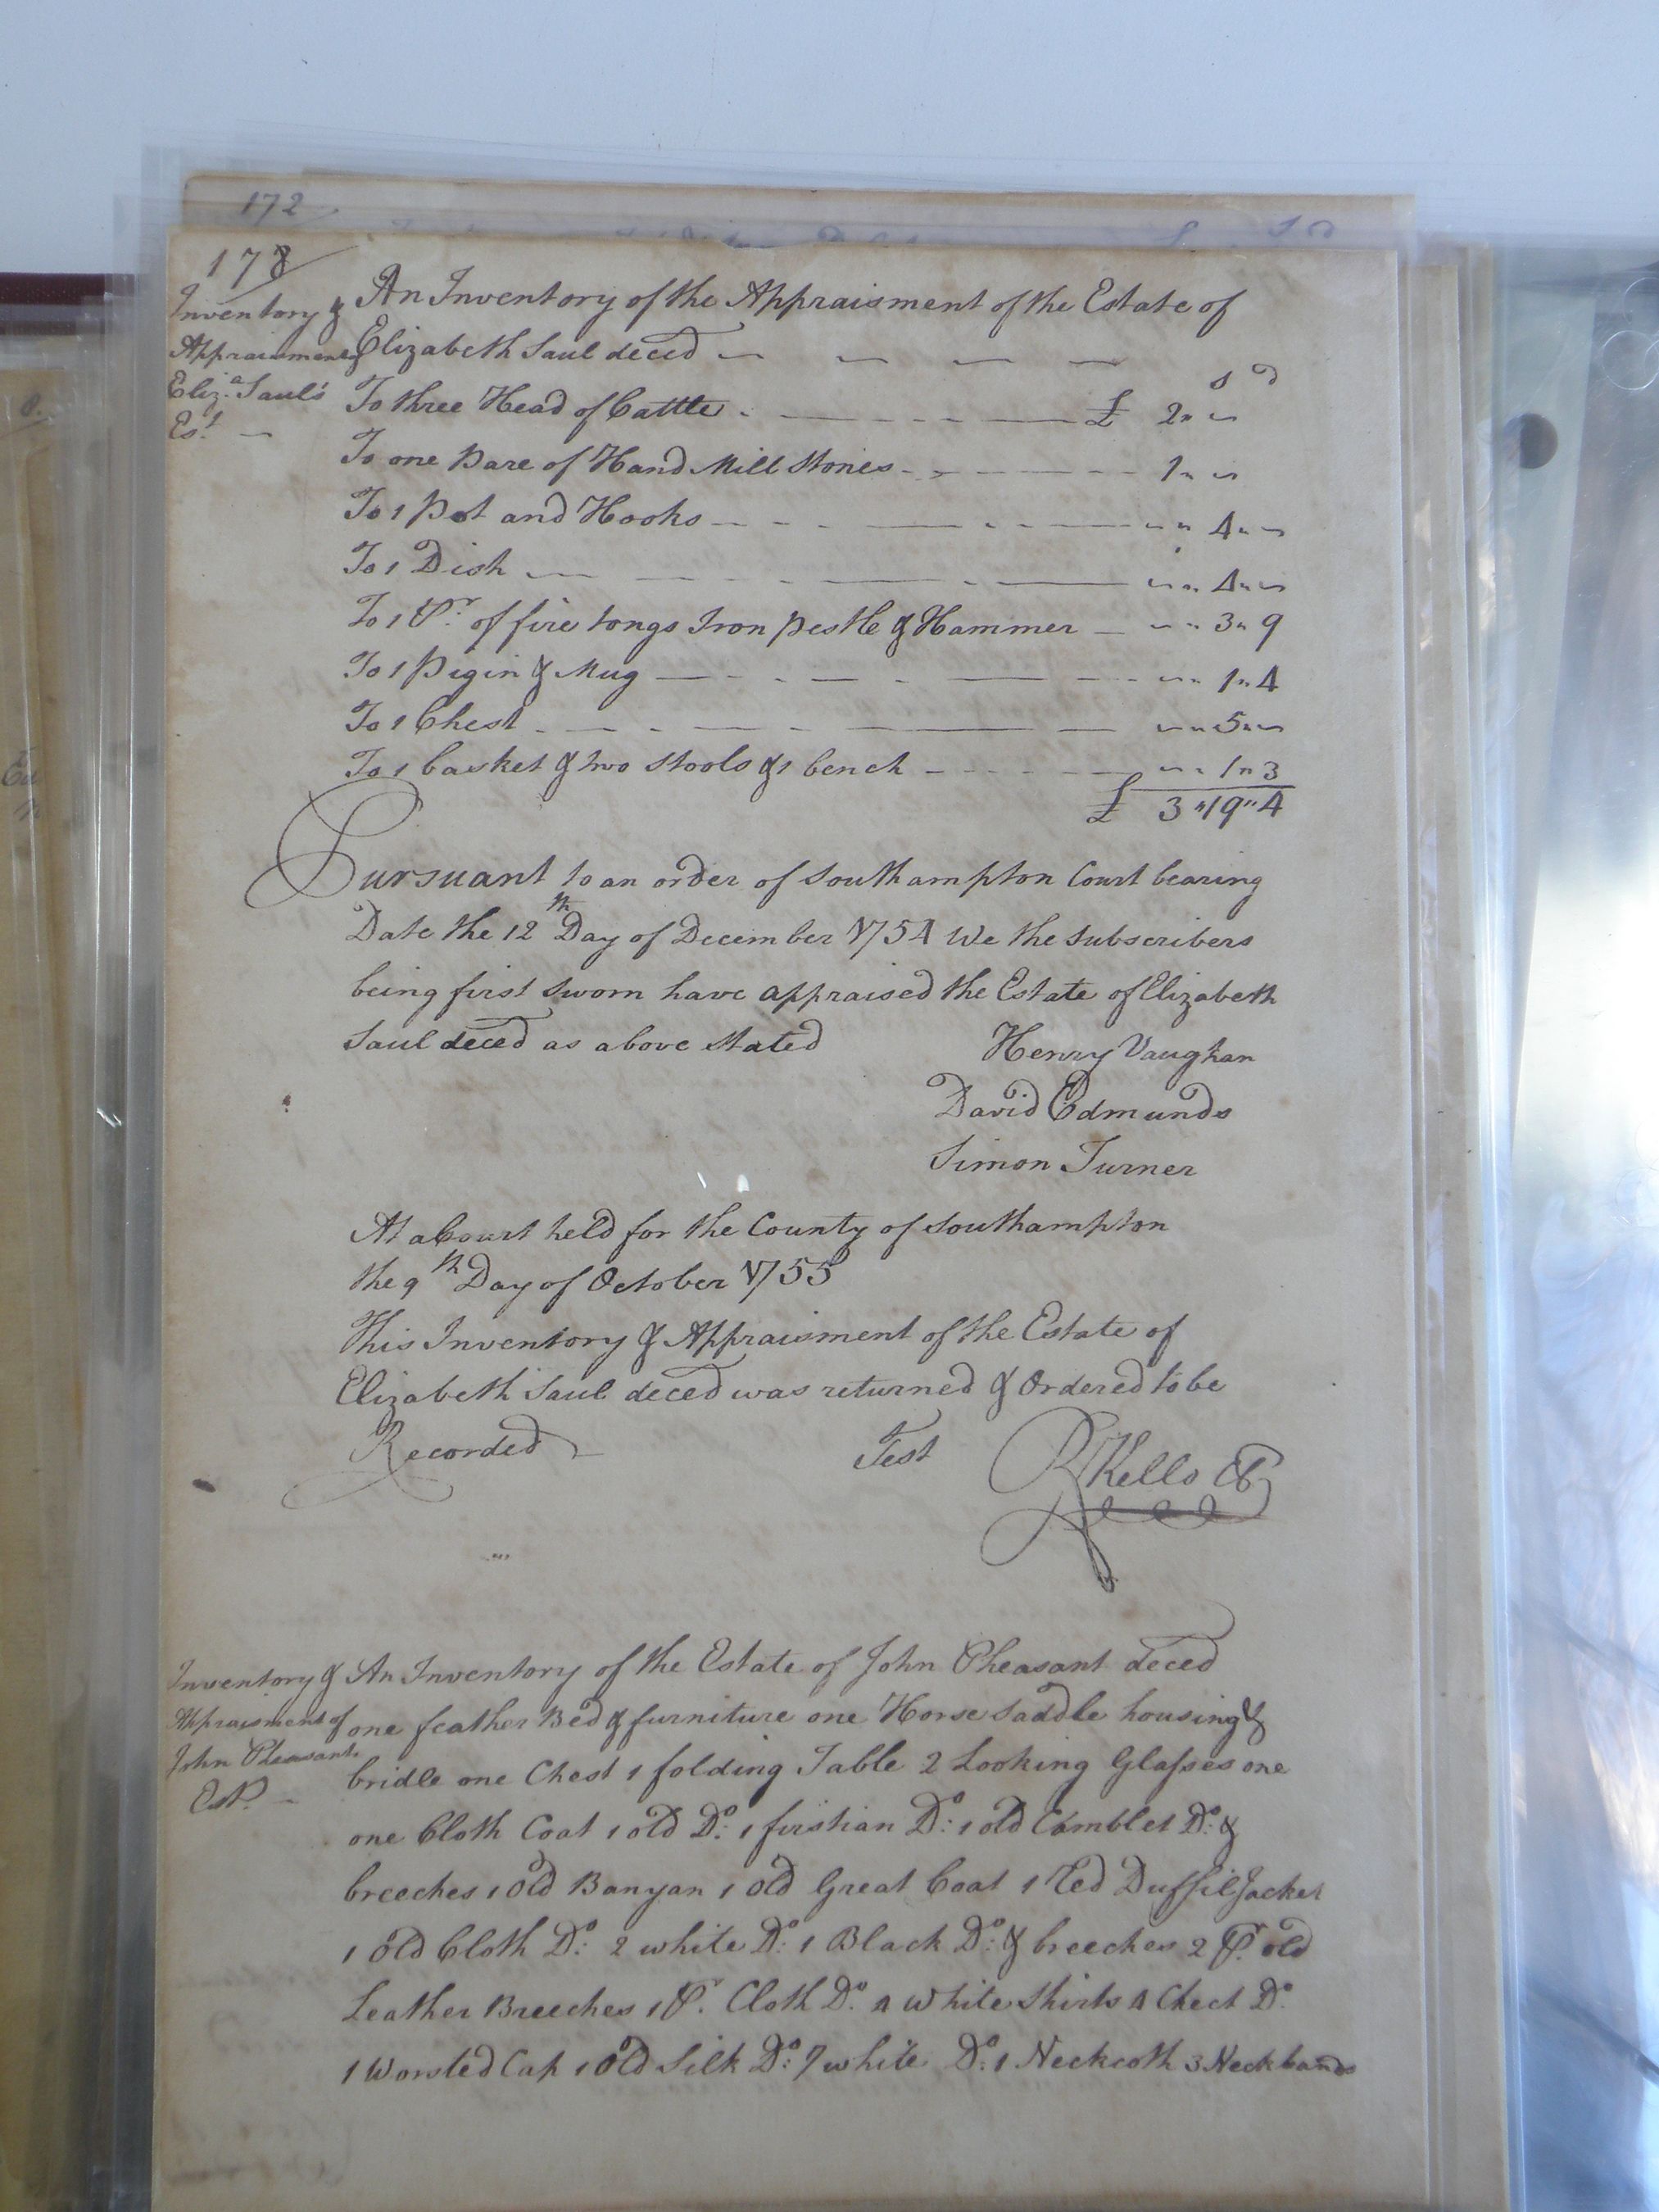 172
178
Inventory &
Appraisment of
Eliz.a Saul's
Es.t —
An Inventory of the Appraisment of the Estate of
Elizabeth Saul deced — — — —
s d
To three Head of Cattle - — — £ 2" "
To one Pare of Hand Mill Stones - - — 1" "
To 1 Pot and Hooks - - — — " 4" "
To 1 Dish — — — " 4" "
To 1 Pr. of fire tongs Iron pestle & Hammer — " 3" 9
To 1 Pigin & Mug — — — " 1" 4
To 1 Chest - — — — " 5" "
To 1 basket & two stools & 1 bench - — " 1" 3
£ 3"19"4
Pursuant to an order of Southampton Court bearing
Date the 12th Day of December 1754 We the Subscribers
being first Sworn have appraised the Estate of Elizabeth
Saul deced as above Stated
Henry Vaughan
David Edmunds
Simon Turner
At a Court held for the County of Southampton
the 9th Day of October 1755
This Inventory & Appraisment of the Estate of
Elizabeth Saul deced was returned & Ordered to be
Recorded Test R Kello
Inventory &
Appraisment of
John Pheasants
Est. —
An Inventory of the Estate of John Pheasant deced
one feather Bed & furniture one Horse Saddle housing &
bridle one Chest 1 folding Table 2 Looking Glasses one
one Cloth Coat 1 old Do: 1 firstian Do: 1 old Camblet Do: &
breeches 1 Old Banyan 1 Old Great Coat 1 Red Duffil Jacket
1 Old Cloth Do: 2 white Do: 1 Black Do: & breeches 2 Pr. old
Leather Breeches 1 Pr. Cloth Do. 4 white Shirts 4 Chect Do.
1 Worsted Cap 1 Old Silk Do: 7 white Do: 1 Neckcoth 3 Neckbands